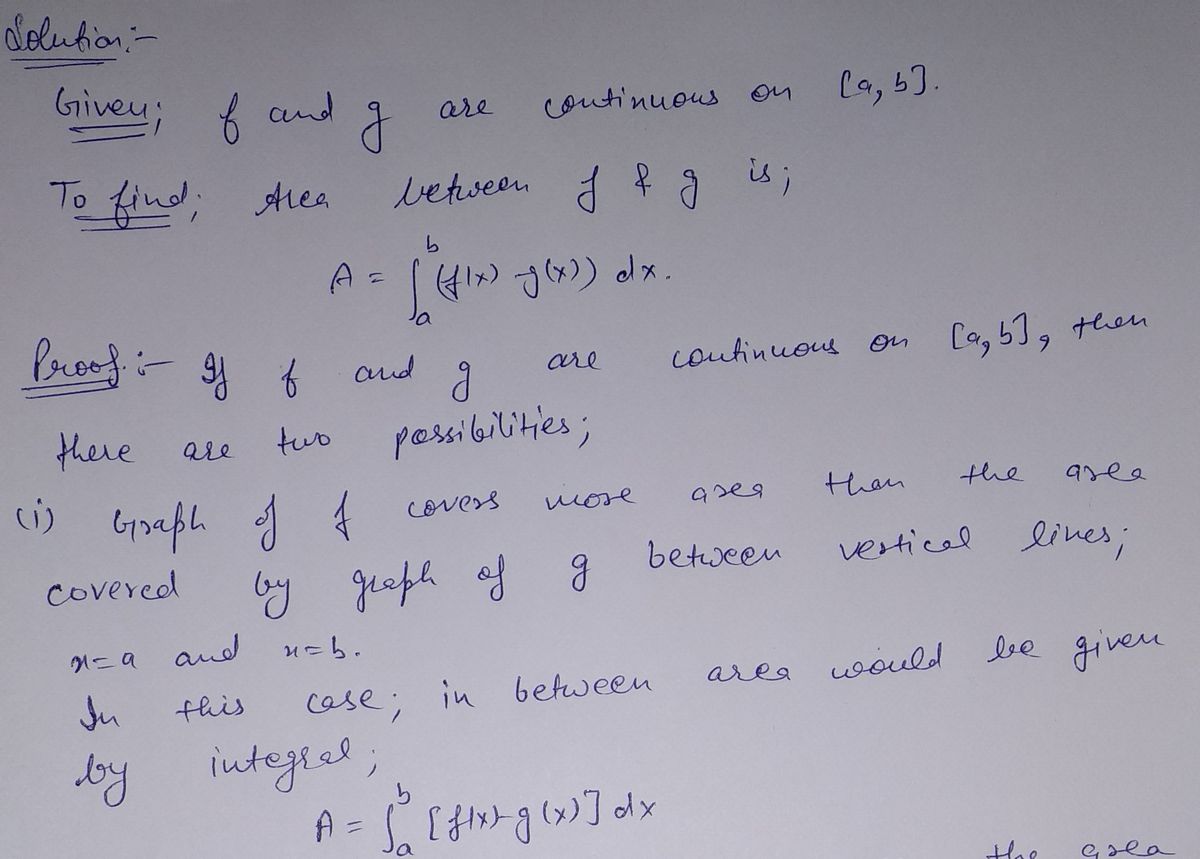 Solution:-
Given; f and g are continuous on [a, b].
To find; Area between f & g is;
A = ∫_a^b (f(x) - g(x)) dx.
Proof:- If f and g are continuous on [a, b], then
there are two possibilities;
(i) Graph of f covers more area than the area
covered by graph of g between vertical lines;
x=a and x=b.
In this case; in between area would be given
by integral;
A = ∫_a^b [f(x)-g(x)] dx
the area